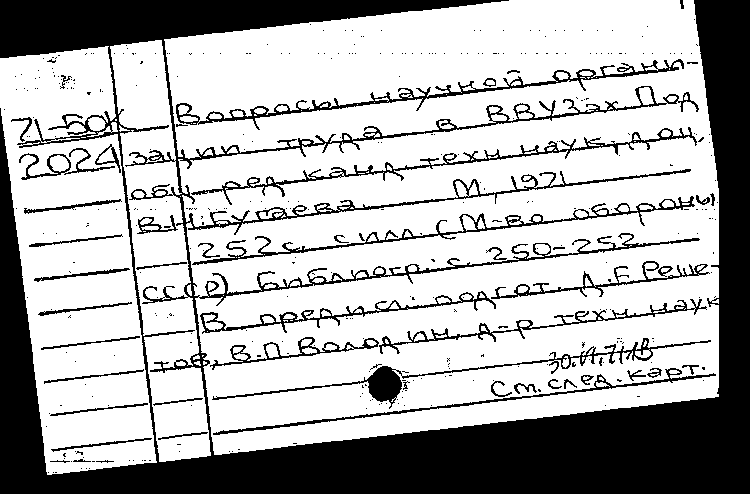 71-50К Вопросы научной органи-
2024 зации труда в ВВУЗах Под
общ. ред. канд. техн. наук, доц.
В.Н. Бугаева. М., 1971
252 с. с илл. (М-во обороны
СССР) Библиогр.: с. 250-252.
В предисл.: подгот. Д.Е. Реше-
тов, В.П. Володин, д-р техн. наук
30.VI.71
См. след. карт.